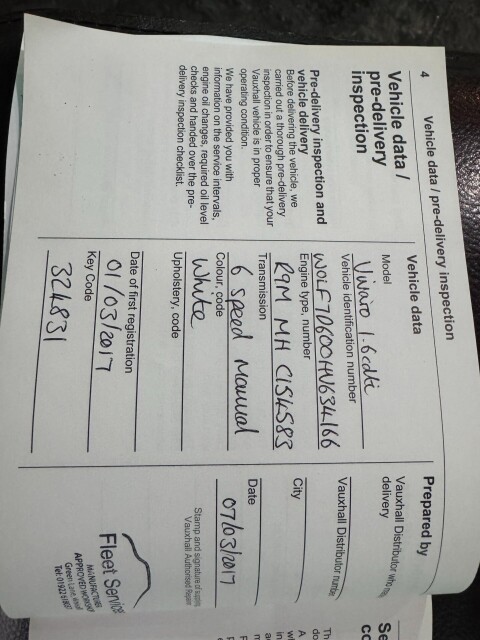 4
Vehicle data / pre-delivery inspection
Vehicle data /
pre-delivery
inspection
Pre-delivery inspection and
vehicle delivery
Before delivering the vehicle, we
carried out a thorough pre-delivery
inspection in order to ensure that your
Vauxhall vehicle is in proper
operating condition.
We have provided you with
information on the service intervals,
engine oil changes, required oil level
checks and handed over the pre-
delivery inspection checklist.
Vehicle data
Model
Vivaro 1.6cdti
Vehicle identification number
W0LF7D600HV634166
Engine type, number
R9M MH C154583
Transmission
6 speed Manual
Colour, code
White
Upholstery, code
Date of first registration
01/03/2017
Key Code
324831
Prepared by
Vauxhall Distributor who
delivery
Vauxhall Distributor
City
Date
07/03/2017
Stamp and signature of
Vauxhall Authorised
Fleet Service
APPROVED
Green Lane
Tel: 01922